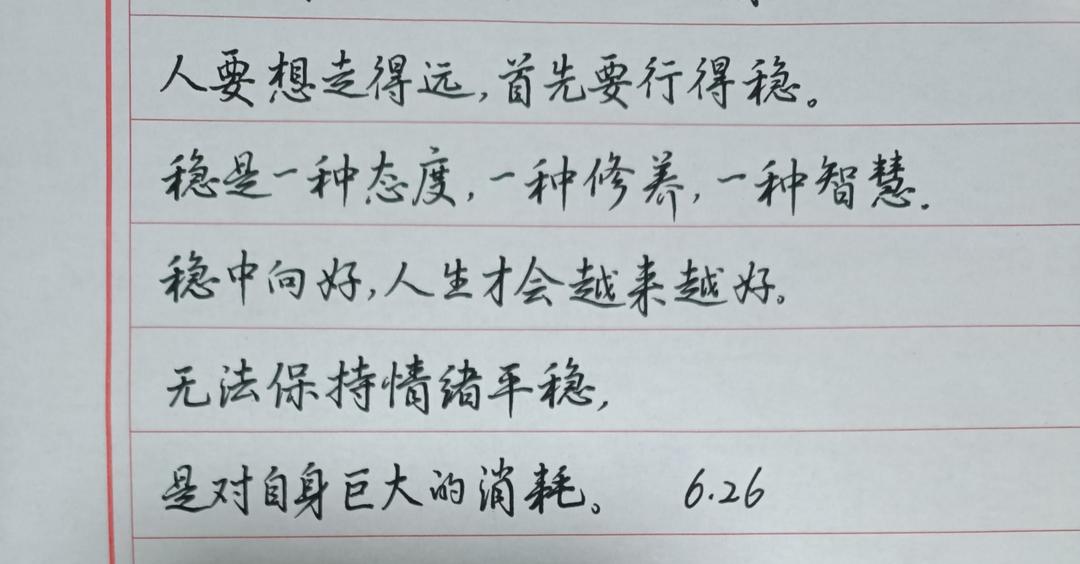 人要想走得远,首先要行得稳。
稳是一种态度,一种修养,一种智慧.
稳中向好,人生才会越来越好。
无法保持情绪平稳,
是对自身巨大的消耗。 6.26